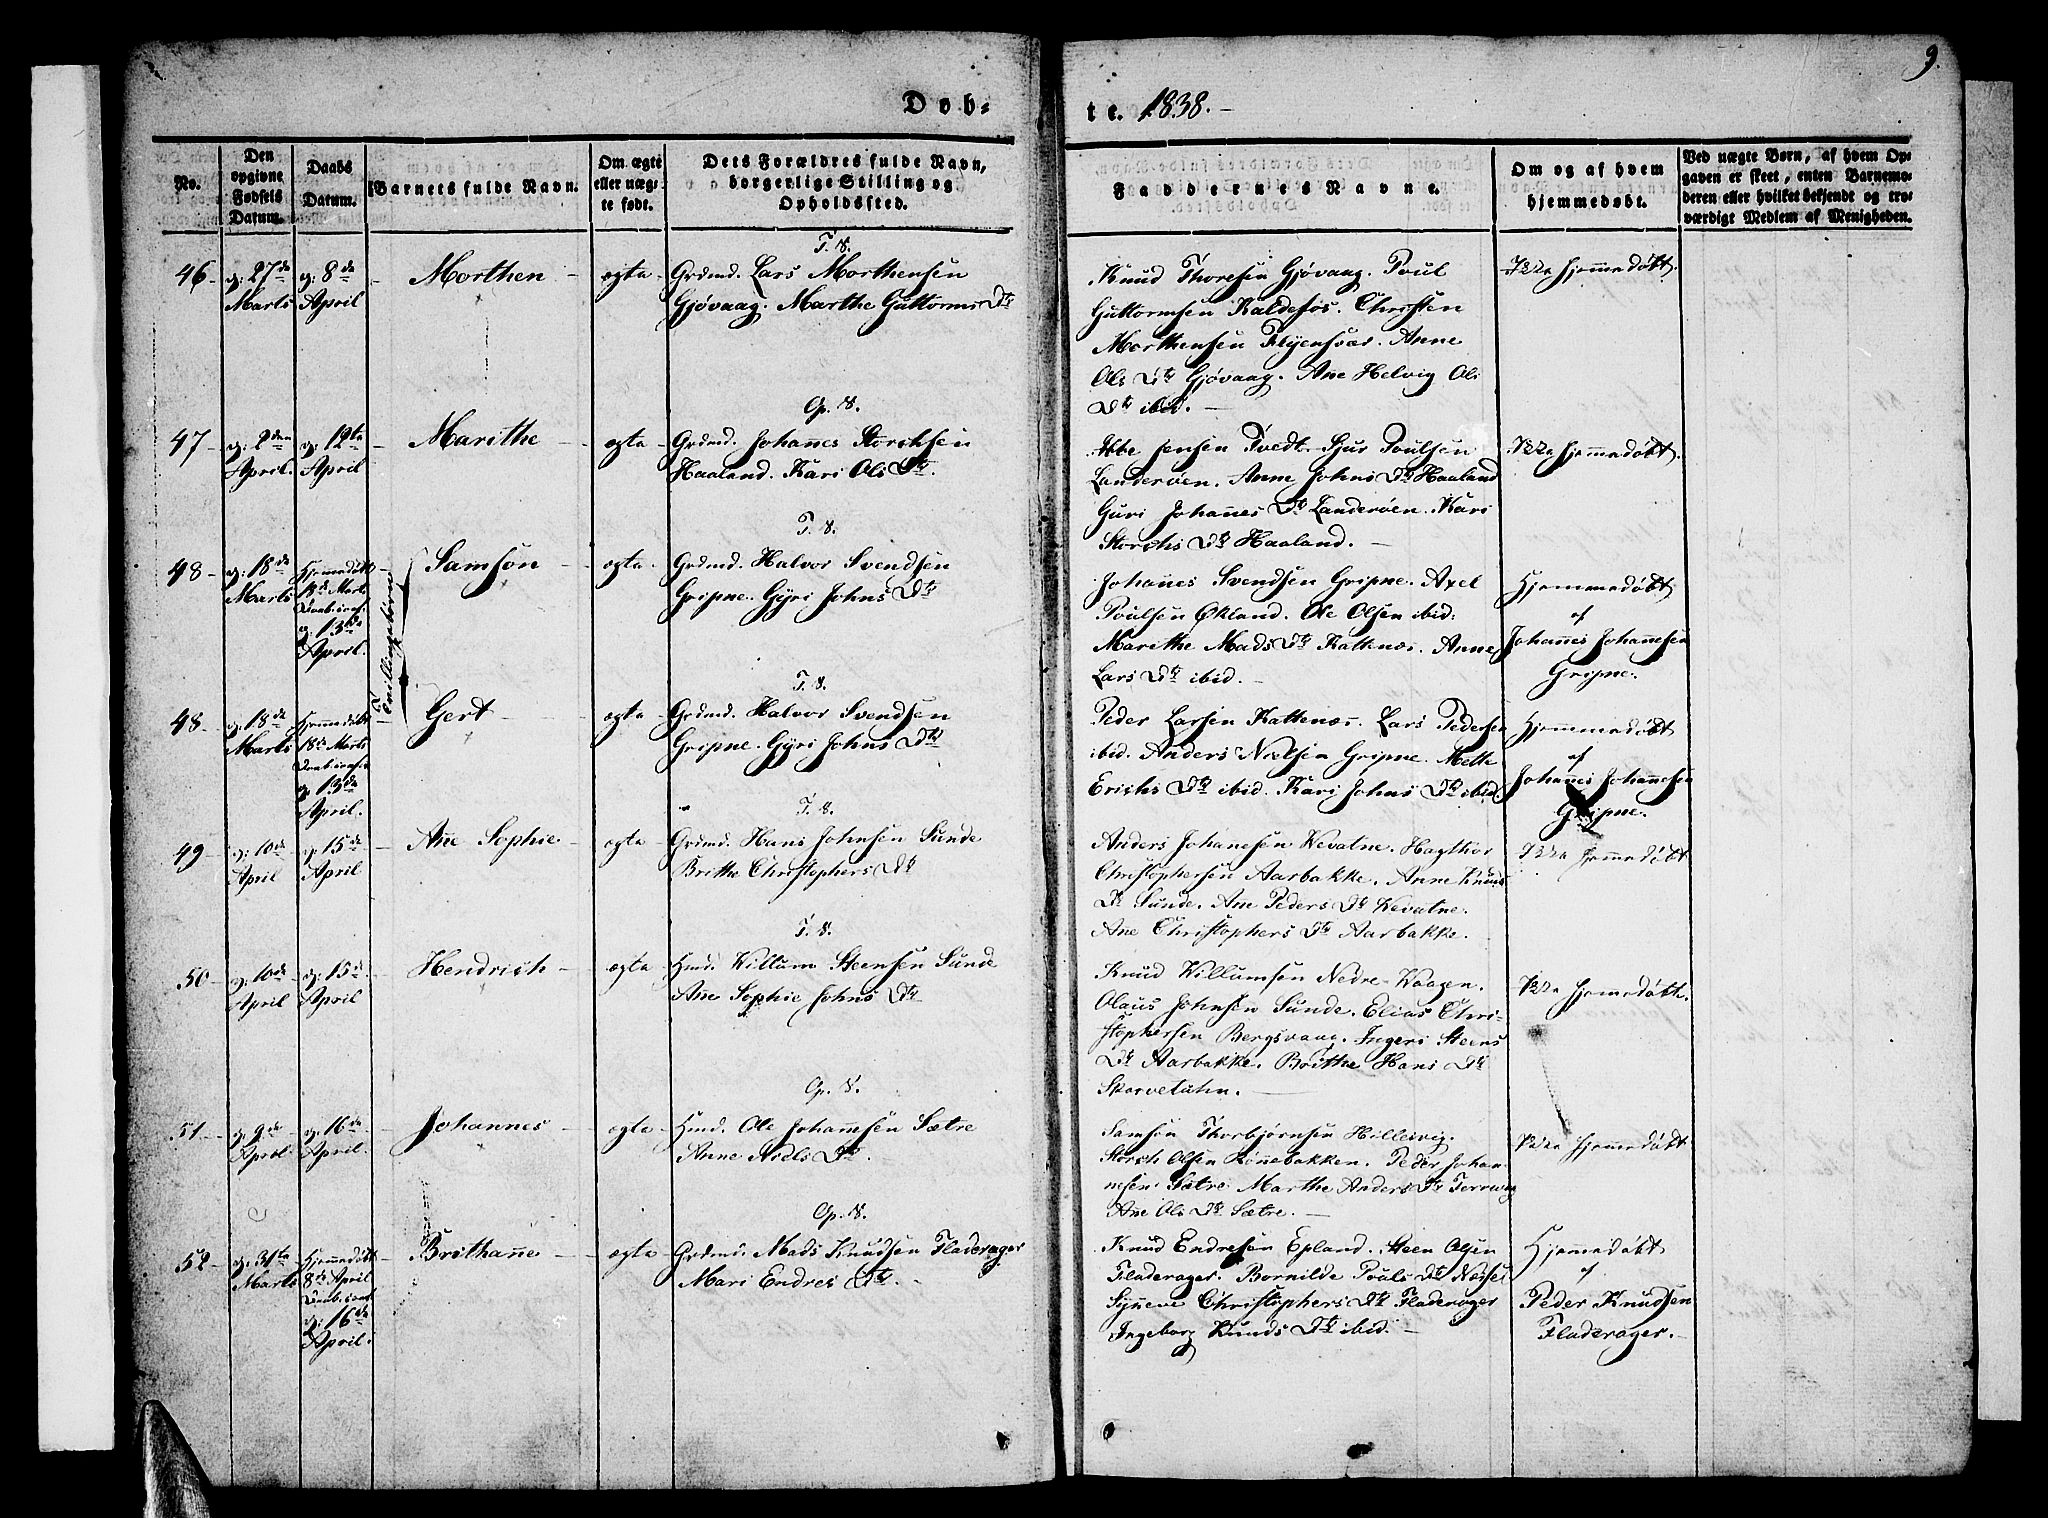 9.
Døb-
te. 1838.
No.
Den
opgivne
Fødsels
Datum.
Daabs
Datum.
Barnets fulde Navn.
Om ægte
eller uæg-
te født.
Dets Forældres fulde Navn,
borgerlige Stilling og
Opholdssted.
Faddernes Navne.
Om og af hvem
hjemmedøbt.
Ved uægte Børn, af hvem Op-
gaven er skeet, enten Barnemo-
deren eller hvilket bekjendt og tro-
værdigt Medlem af Menigheden.
T. S.
46 - d: 27de
Marts
d: 8de
April
Morthen -
ægte -
Grdmd. Lars Morthensen
Gjøvaag. Marthe Guttorms Dtr
Knud Thoresen Gjøvaag. Poul
Guttormsen Kaldefos. Christen
Morthensen Flyensvær. Anne
Ols Dtr Gjøvaag. Ane Helvig Ols
Dtr ibid. -
Ikke hjemmedøbt.
Op. S.
47 - d: 2den
April.
d: 12te
April
Marithe
ægte -
Grdmd. Johanes Storchsen
Haaland. Kari Ols Dtr
Abbe Jensen Tvedt. Sjur Poulsen
Landerøen. Anne Johns Dtr Haaland
Guri Johanes Dtr Landerøen. Kari
Storchs Dtr Haaland. -
Ikke hjemmedøbt.
T. S.
48 - d: 18de
Marts
Hjemmedøbt
18de Marts
Daab. conf.
d: 13de
April.
Tvillingebørn
Samson -
ægte -
Grdmd. Halvor Svendsen
Gripne. Gyri Johns Dtr
Johanes Svendsen Gripne. Axel
Poulsen Økland. Ole Olsen ibid:
Marithe Mads Dtr Kattenæs. Anne
Lars Dtr ibid. -
Hjemmedøbt
af
Johanes Johanesen
Gripne.
T. S.
48 - d: 18de
Marts
Hjemmedøbt
18de Marts
Daab. conf.
d: 13de
April.
Gert
ægte -
Grdmd. Halvor Svendsen
Gripne. Gyri Johns Dtr
Peder Larsen Kattenæs. Lars Pedersen
ibid. Anders Nielsen Gripne. Mette
Erichs Dtr ibid. Kari Johns Dtr ibid.
Hjemmedøbt
af
Johanes Johanesen
Gripne.
T. S.
49 - d: 10de
April
d: 15de
April
Ane Sophie -
ægte
Grdmd. Hans Johnsen Sunde
Brithe Christophers Dtr
Anders Johanesen Kevatne. Hagthor
Christophersen Aarbakke. Anne Knuds
Dtr Sunde. Ane Peders Dtr Kevatne.
Ane Christophers Dtr Aarbakke.
Ikke hjemmedøbt
T. S.
50 - d: 10de
April
d: 15de
April
Hendrich -
ægte
Hmd. Villum Steensen Sunde
Ane Sophie Johns Dtr
Knud Villumsen Nedre-Vaagen.
Olaus Johnsen Sunde. Elias Chri-
stophersen Bergsvaag. Ingeri Steens
Dtr Aarbakke. Brithe Hans Dtr
Skorvetuhn. -
Ikke hjemmedøbt.
Op. S.
51 - d: 9de
April.
d: 16de
April.
Johannes -
ægte -
Hmd. Ole Johannesen Sætre
Anne Niels Dtr. -
Samson Thorbjørnsen Hillesvig.
Storch Olsen Rønebakken. Peder Johan-
nesen Sætre Marthe Anders Dtr
Ane Ols Dtr Sætre. -
Ikke hjemmedøbt
Op. S.
52 - d: 31te
Marts
Hjemmedøbt
8de April
Daab. conf
d: 16de
April.
Brithane -
ægte
Grdmd. Mads Knudsen Fladerager
Mari Endres Dtr. -
Knud Endresen Epland. Steen Olsen
Fladerager. Bornilde Pouls Dtr Næsse.
Syneve Christophers Dtr Fladerager
Ingeborg Knuds Dtr ibid. -
Hjemmedøbt
af
Peder Knudsen
Fladerager. -